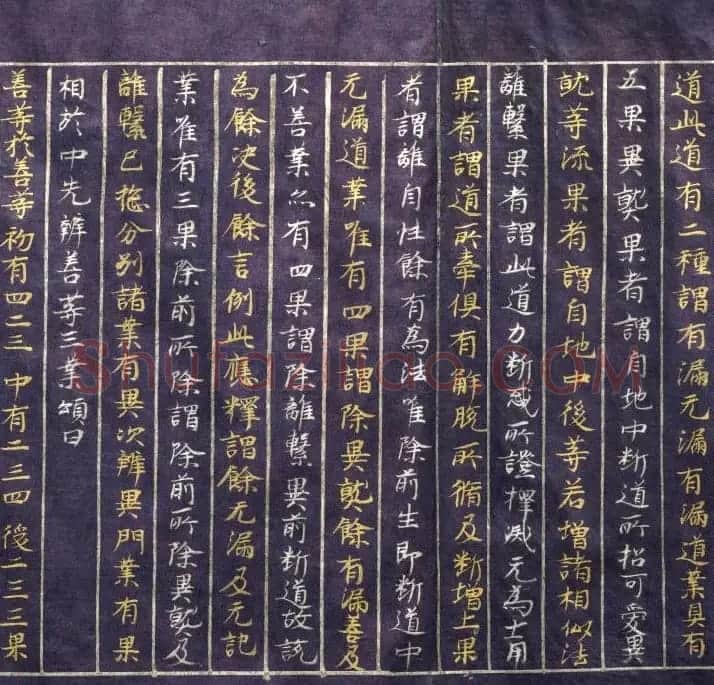 道此道有二種謂有漏无漏有漏道業具有
五果異熟果者謂自地中斷道所招可愛異
熟等流果者謂自地中後等若增諸相似法
離繫果者謂此道力斷惑所證擇滅无為士用
果者謂道所牽俱有解脫所脩及斷增上果
者謂離自性餘有為法唯除前生即斷道中
无漏道業唯有四果謂除異熟餘有漏善及
不善業亦有四果謂除離繫異前斷道故說
為餘次後餘言例此應釋謂餘无漏及无記
業唯有三果除前所除謂除前所除異熟及
離繫已捴分別諸業有果次辨異門業有果
相於中先辨善等三業頌曰
善等於善等初有四二三中有二三四後二三三果
Shufaziliao.COM